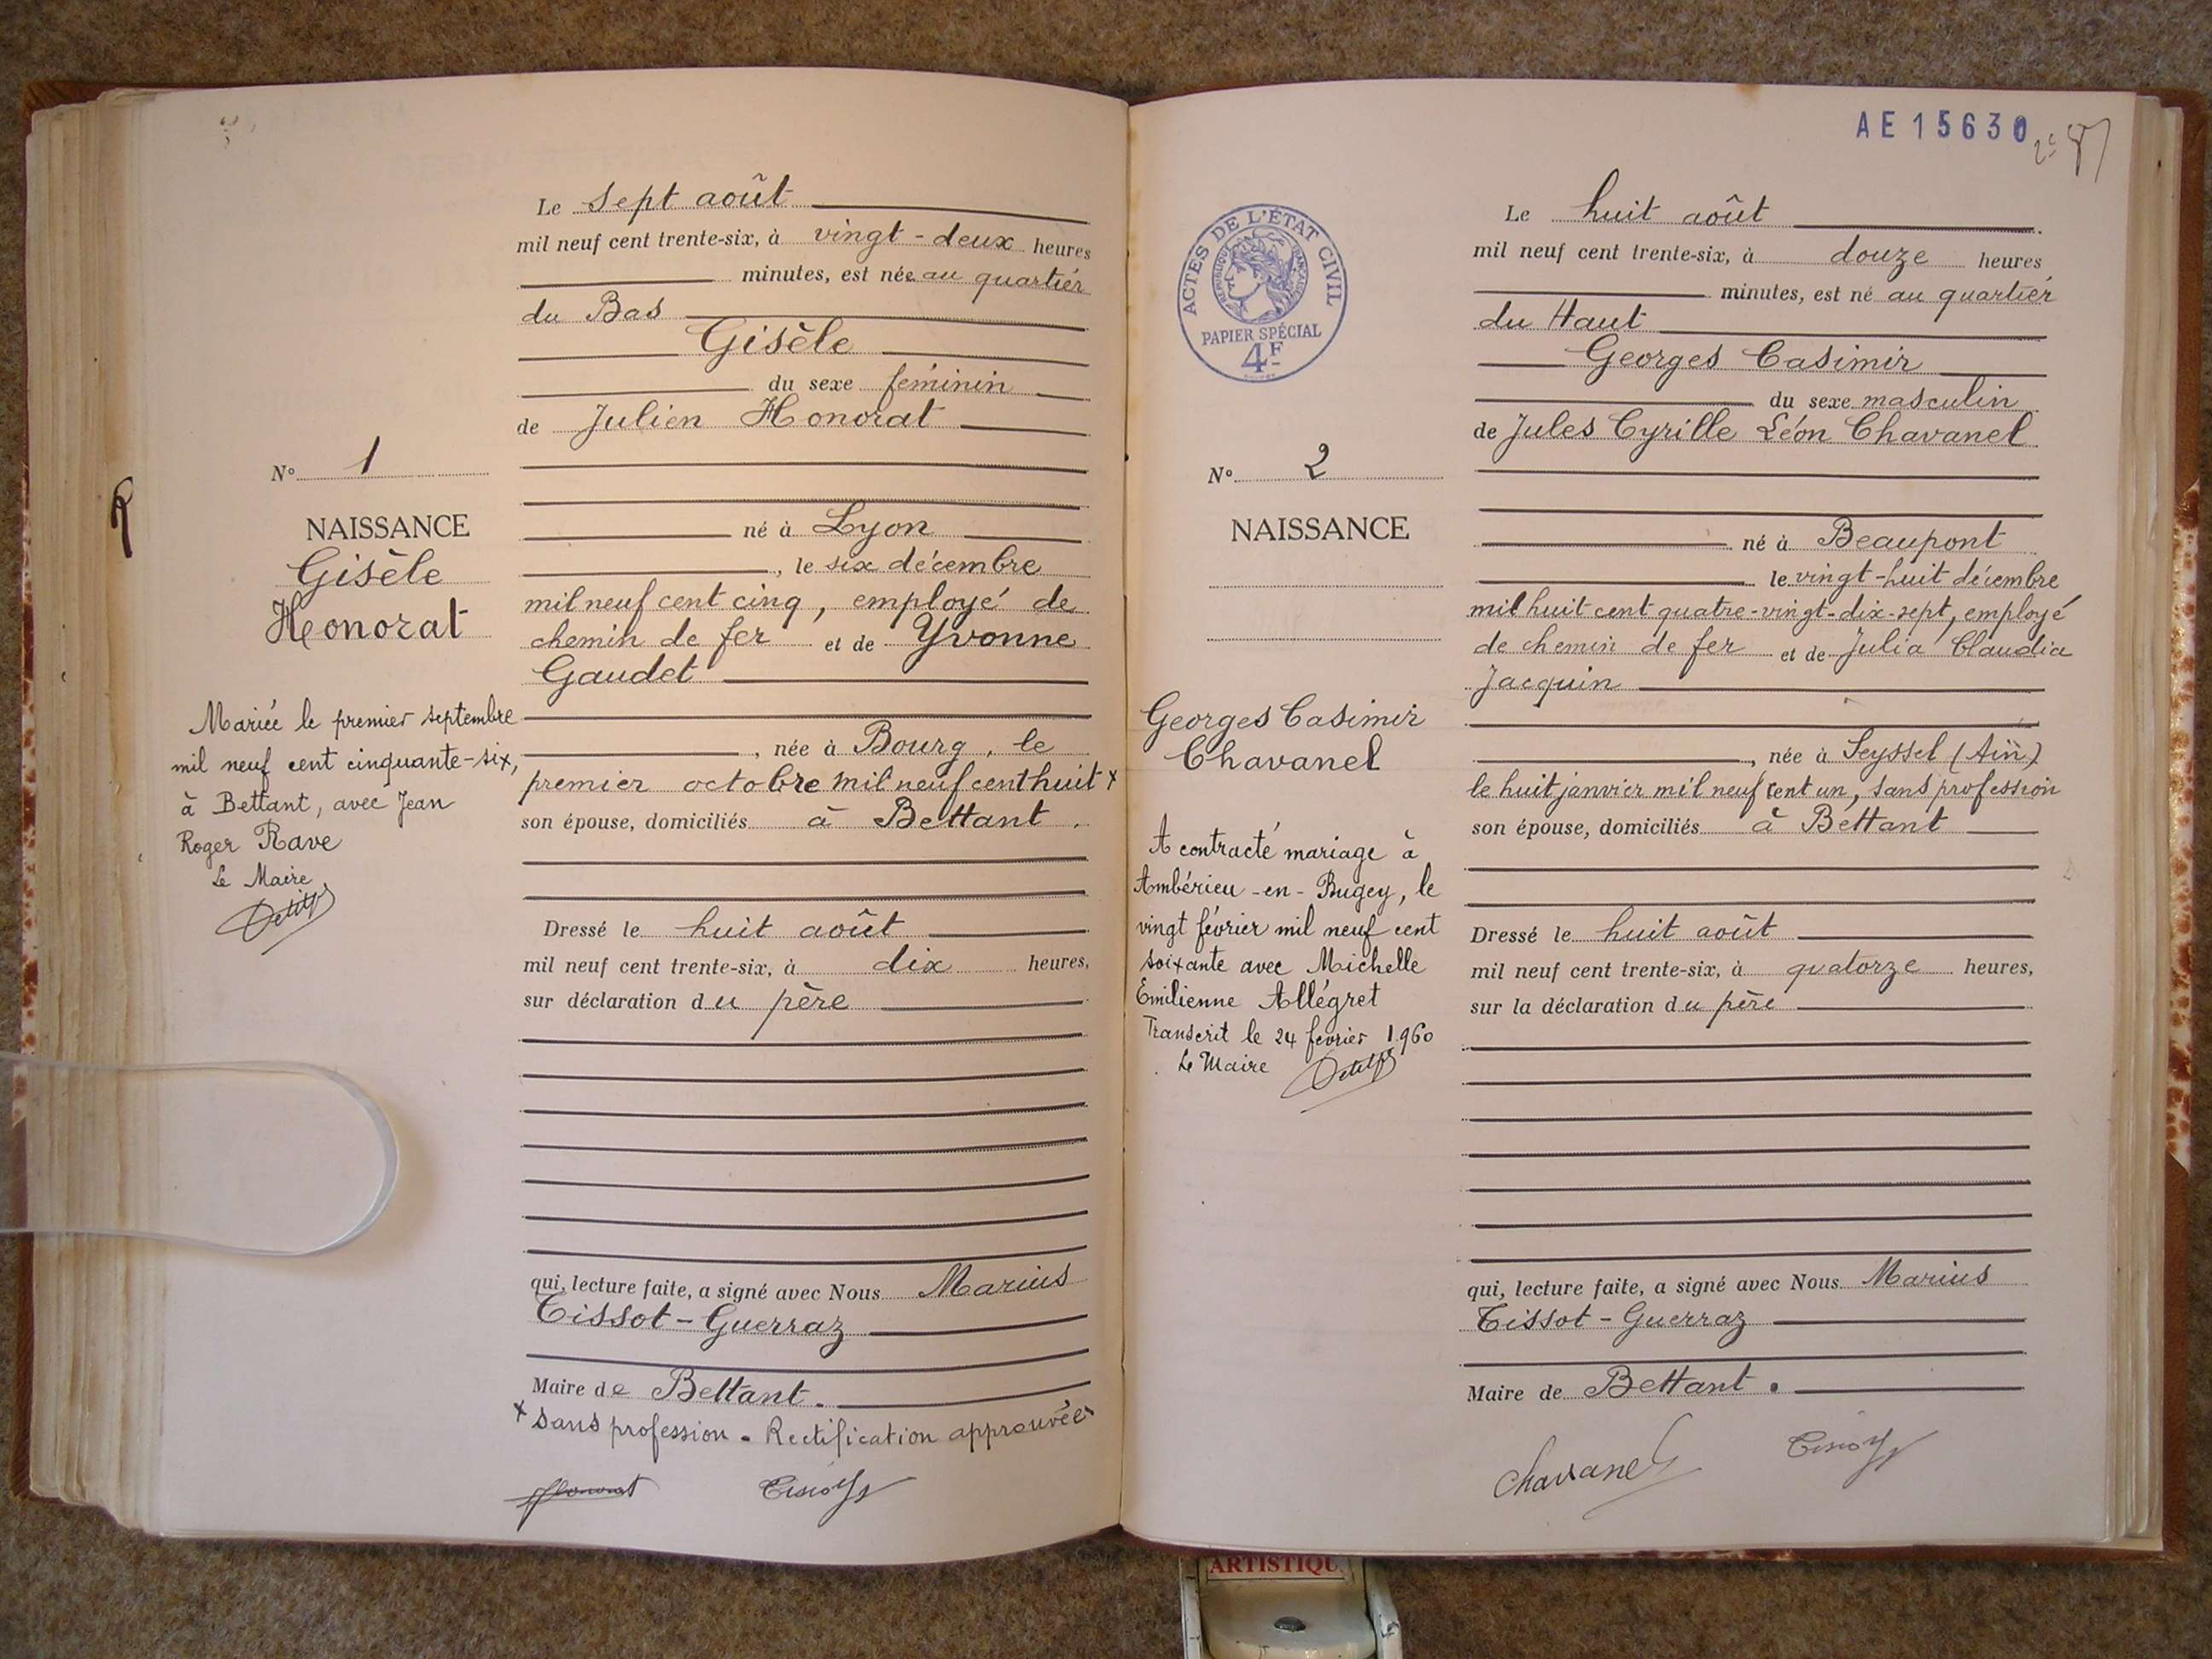 Le sept août
mil neuf cent trente-six, à vingt-deux heures
minutes, est née au quartier
du Bas
Gisèle
du sexe féminin
de Julien Honorat
N° 1
NAISSANCE
Gisèle
Honorat
né à Lyon
, le six décembre
mil neuf cent cinq, employé de
chemin de fer et de Yvonne
Gaudet
Mariée le premier septembre
mil neuf cent cinquante-six,
à Bettant, avec Jean
Roger Rave
Le Maire
, née à Bourg, le
premier octobre mil neuf cent huit x
son épouse, domiciliés à Bettant.
Dressé le huit août
mil neuf cent trente-six, à dix heures,
sur déclaration du père
qui, lecture faite, a signé avec Nous Marius
Tissot-Guerraz
Maire de Bettant.
x sans profession. Rectification approuvée
Honorat
AE15630
ACTES DE L'ÉTAT CIVIL
RÉPUBLIQUE FRANÇAISE
PAPIER SPÉCIAL
4F
Le huit août
mil neuf cent trente-six, à douze heures
minutes, est né au quartier
du Haut
Georges Casimir
du sexe masculin
de Jules Cyrille Léon Chavanel
N° 2
NAISSANCE
Georges Casimir
Chavanel
né à Beaupont
le vingt-huit décembre
mil huit cent quatre-vingt-dix-sept, employé
de chemin de fer et de Julia Claudia
Jacquin
, née à Seyssel (Ain)
le huit janvier mil neuf cent un, sans profession
son épouse, domiciliés à Bettant
A contracté mariage à
Ambérieu-en-Bugey, le
vingt février mil neuf cent
soixante avec Michelle
Emilienne Allégret
Transcrit le 24 février 1960
Le Maire
Dressé le huit août
mil neuf cent trente-six, à quatorze heures,
sur la déclaration du père
qui, lecture faite, a signé avec Nous Marius
Tissot-Guerraz
Maire de Bettant.
Chavanel
ARTISTIQU